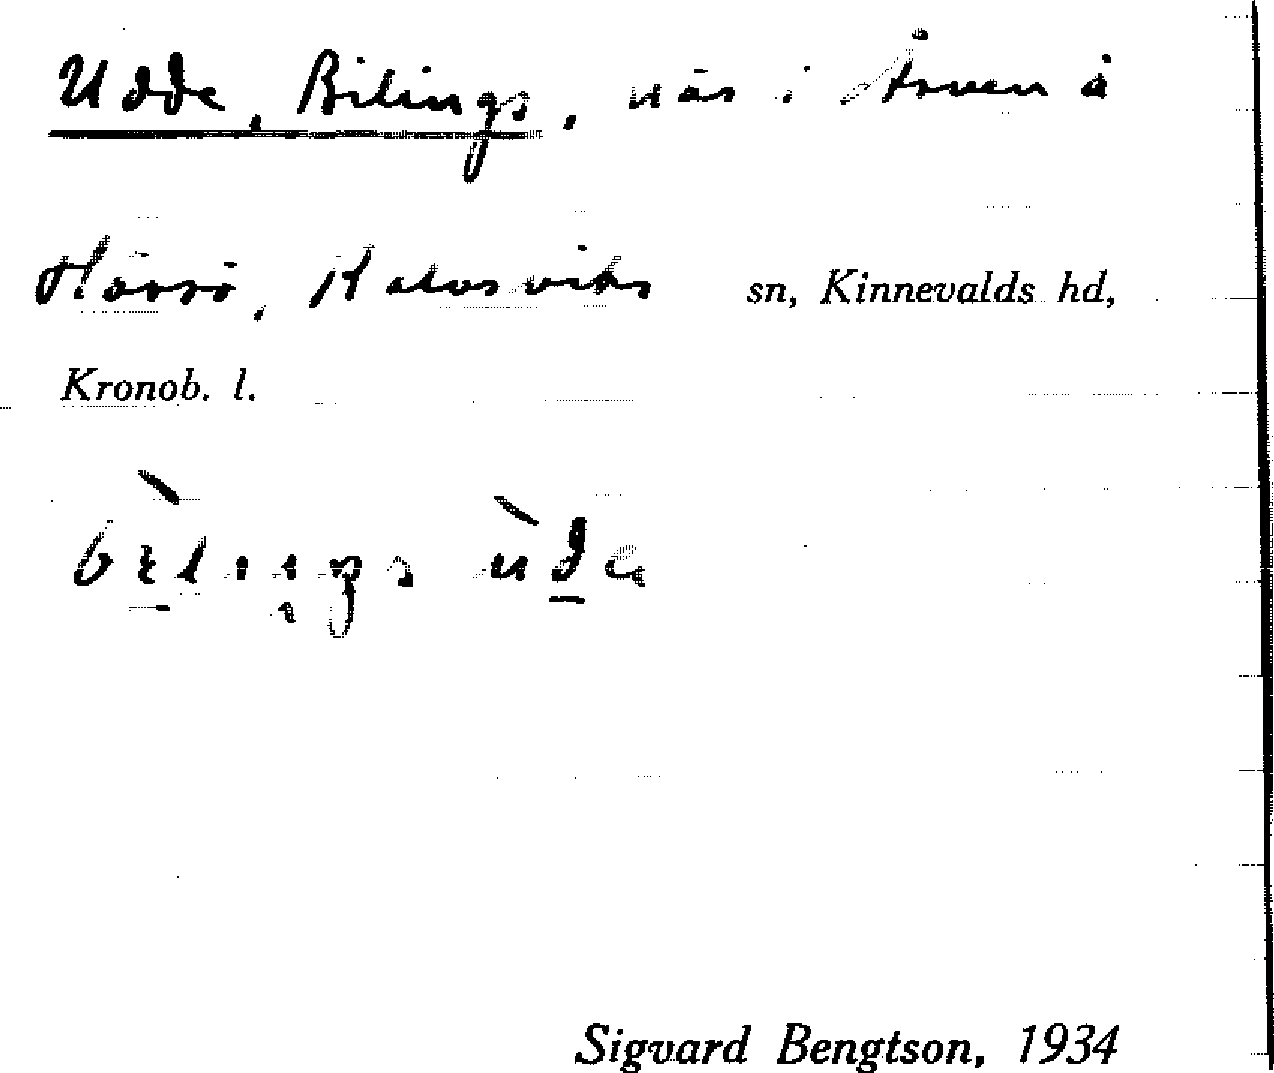 Udde, Bilings, näs i Åsnen å
Hössö, Kalvsviks sn, Kinnevalds hd,
Kronob. l.
Sigvard Bengtson, 1934